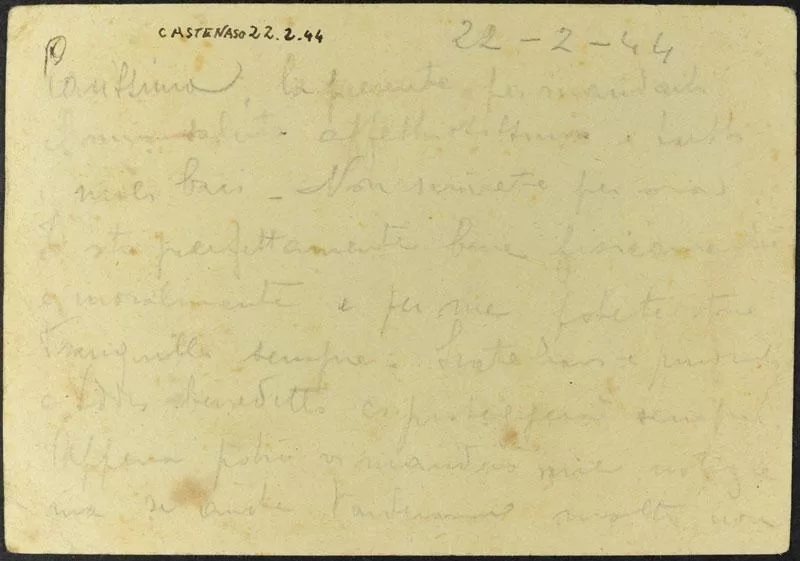 CASTENASO 22.2.44
22-2-44
Carissima, la presente per mandarti
il mio saluto affettuosissimo e tanti
baci - Non scrivete per ora
Io sto perfettamente bene fisicamente
e moralmente e per me potete stare
tranquilla sempre. State
e Iddio benedetto ci protegga sempre
Appena potrò vi manderò mie notizie
ma se anche tarderanno molto non